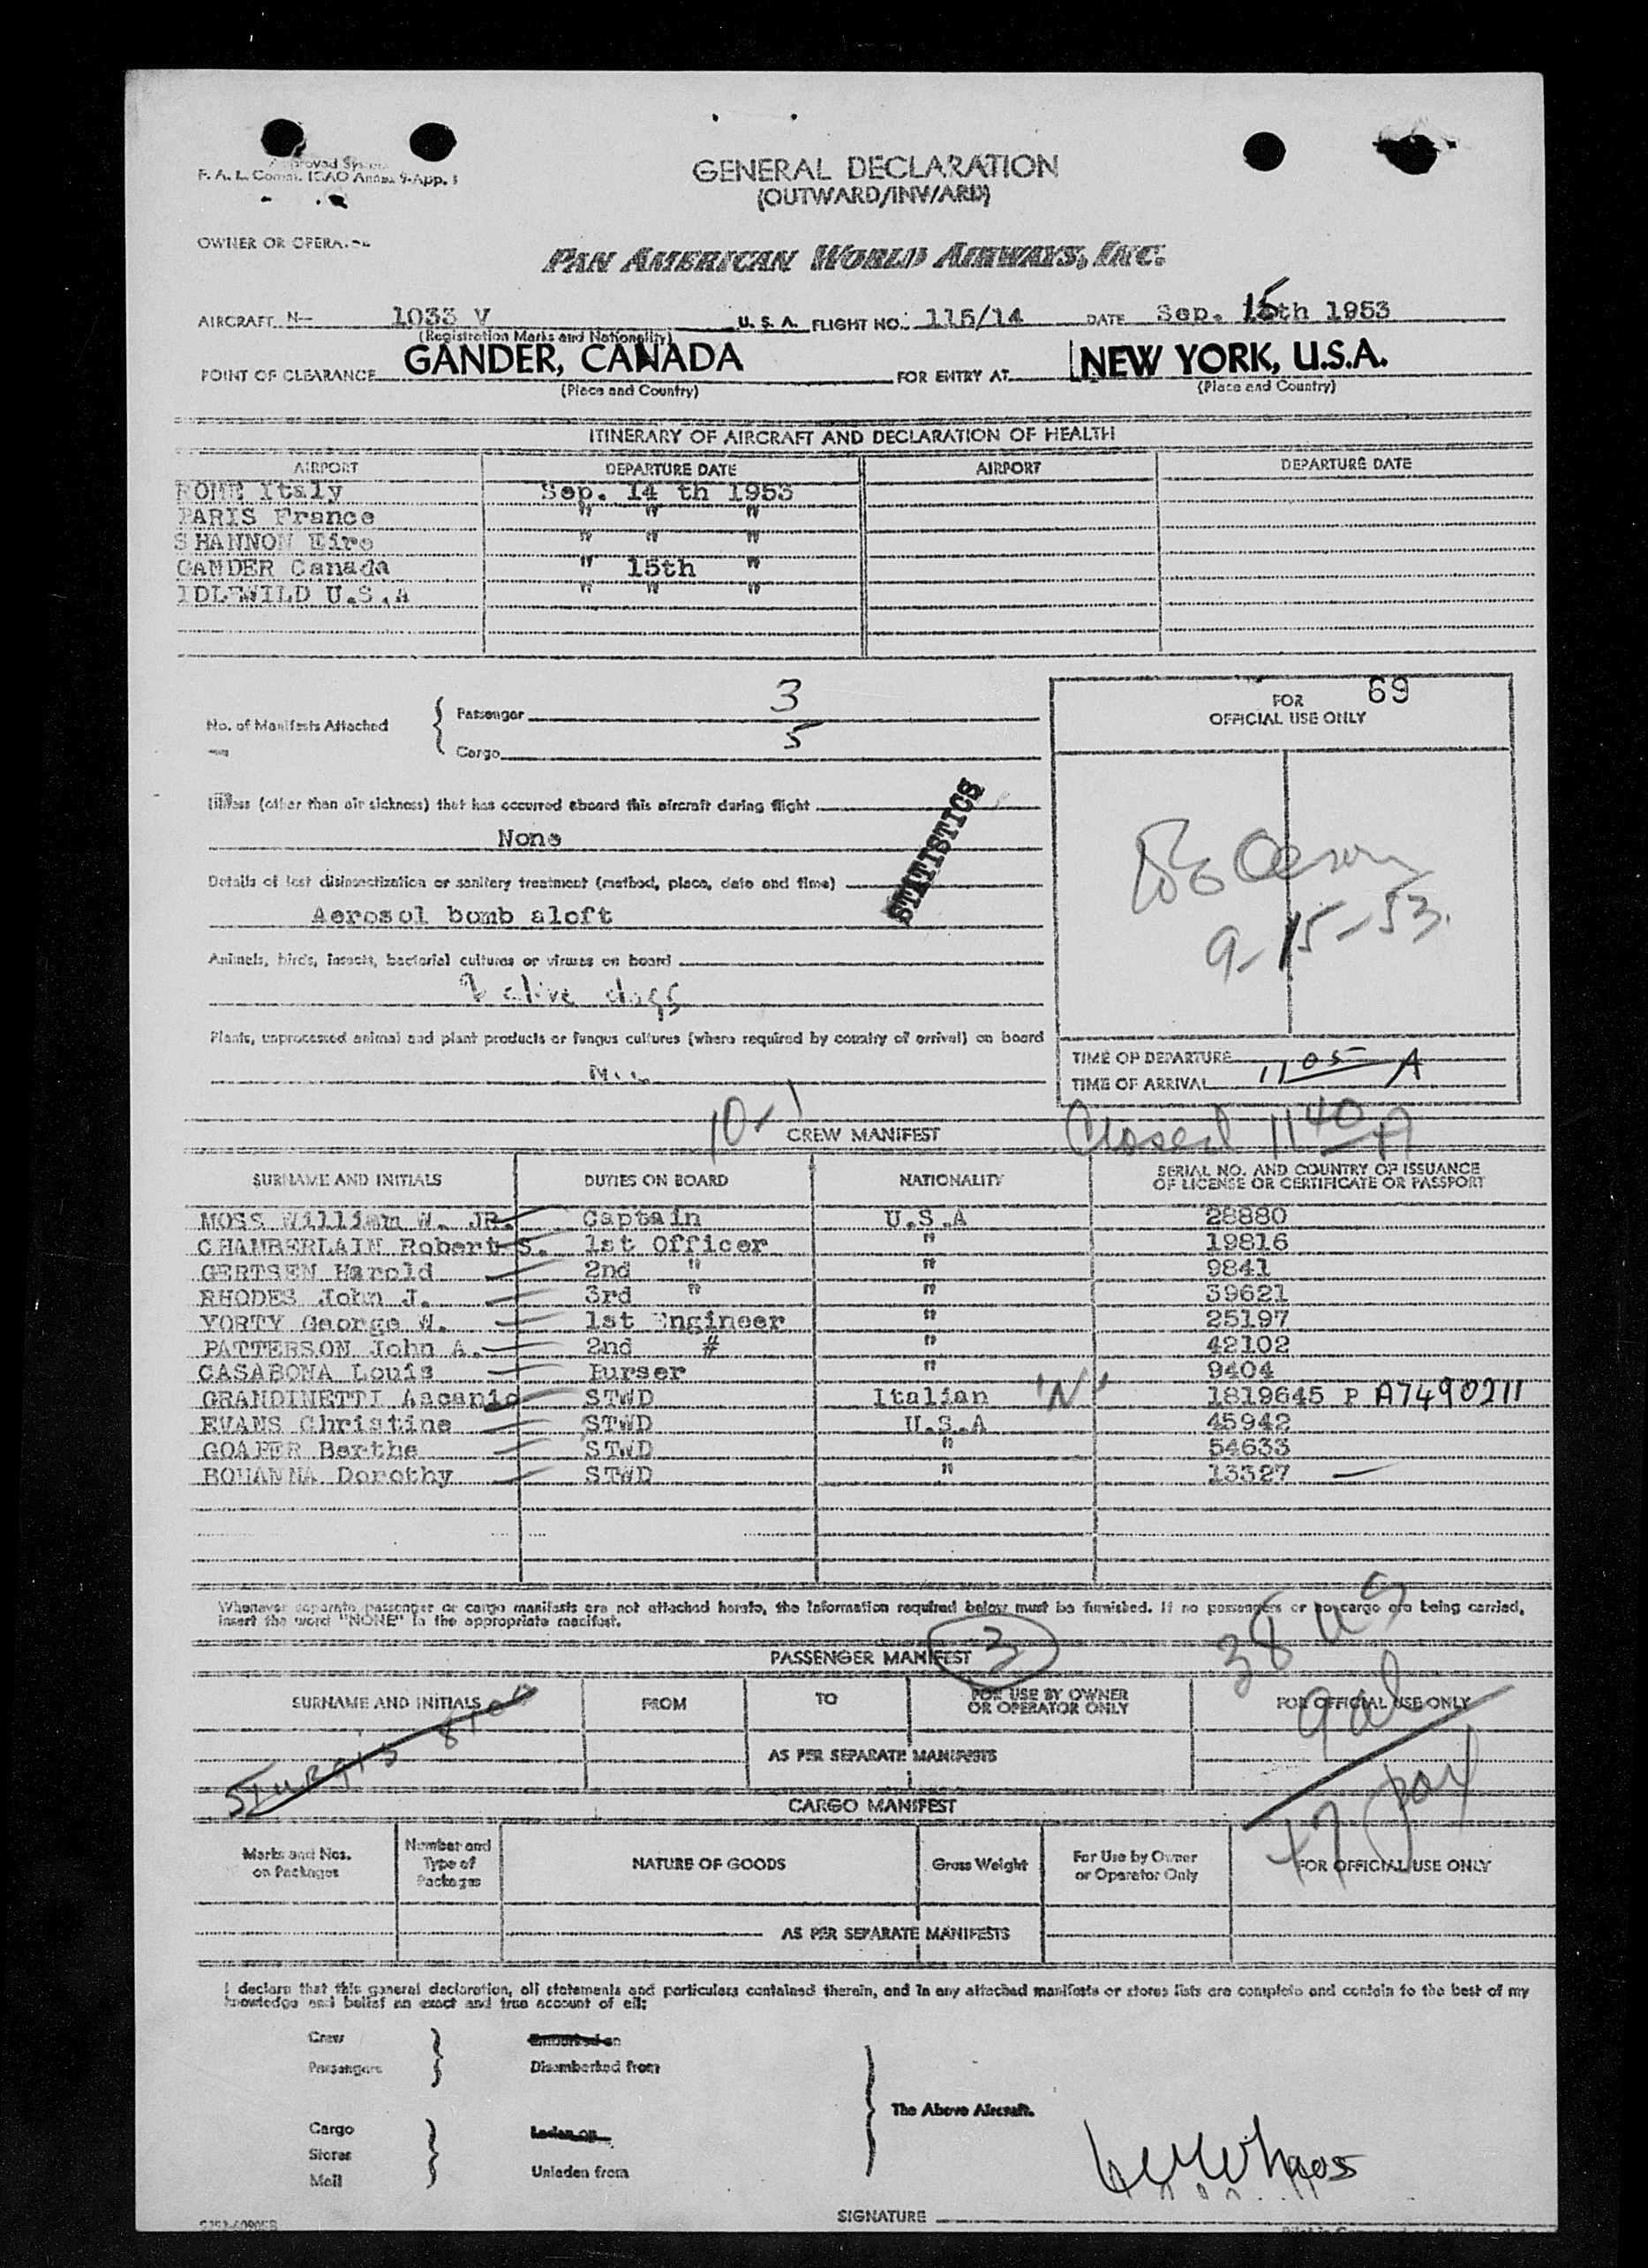 GENERAL DECLARATION
(OUTWARD/INWARD)
F. A. L. Comm. ICAO Annex 9-App. 1
OWNER OR OPERATOR
PAN AMERICAN WORLD AIRWAYS, INC.
AIRCRAFT N- 1033 V U. S. A. FLIGHT NO. 115/14 DATE Sep. 15th 1953
(Registration Marks and Nationality)
POINT OF CLEARANCE GANDER, CANADA FOR ENTRY AT NEW YORK, U.S.A.
(Place and Country) (Place and Country)
ITINERARY OF AIRCRAFT AND DECLARATION OF HEALTH
AIRPORT DEPARTURE DATE AIRPORT DEPARTURE DATE
ROME Italy Sep. 14 th 1953
PARIS France " " "
SHANNON Eire " " "
GANDER Canada " 15th "
IDLEWILD U.S.A " " "
No. of Manifests Attached { Passenger 3
Cargo 5
FOR OFFICIAL USE ONLY 69
Illness (other than air sickness) that has occurred aboard this aircraft during flight
None
STATISTICS
Details of last disinsectization or sanitary treatment (method, place, date and time)
Aerosol bomb aloft
9-15-53.
Animals, birds, insects, bacterial cultures or viruses on board
2 alive dogs
Plants, unprocessed animal and plant products or fungus cultures (where required by country of arrival) on board
TIME OF DEPARTURE
TIME OF ARRIVAL 11 05 A
Closed 11 40 A
CREW MANIFEST
SURNAME AND INITIALS DUTIES ON BOARD NATIONALITY SERIAL NO. AND COUNTRY OF ISSUANCE OF LICENSE OR CERTIFICATE OR PASSPORT
MOSS William W. JR. Captain U.S.A 28880
CHAMBERLAIN Robert S. 1st Officer " 19816
GERTSEN Harold 2nd " " 9841
RHODES John J. 3rd " " 39621
YORTY George W. 1st Engineer " 25197
PATTERSON John A. 2nd # " 42102
CASABONA Louis Purser " 9404
GRANDINETTI Ascanio STWD Italian "N" 1819645 P A7490211
EVANS Christine STWD U.S.A 45942
GOAPER Berthe STWD " 54633
BOHANNA Dorothy STWD " 13327
Whenever separate passenger or cargo manifests are not attached hereto, the information required below must be furnished. If no passengers or no cargo are being carried,
insert the word "NONE" in the appropriate manifest.
38 US
PASSENGER MANIFEST 3
SURNAME AND INITIALS FROM TO FOR USE BY OWNER OR OPERATOR ONLY FOR OFFICIAL USE ONLY
9 al
Sturgis
AS PER SEPARATE MANIFESTS
47 pax
CARGO MANIFEST
Marks and Nos. on Packages Number and Type of Packages NATURE OF GOODS Gross Weight For Use by Owner or Operator Only FOR OFFICIAL USE ONLY
AS PER SEPARATE MANIFESTS
I declare that this general declaration, all statements and particulars contained therein, and in any attached manifests or stores lists are complete and contain to the best of my
knowledge and belief an exact and true account of all:
Crew } Embarked on
Passengers Disembarked from
The Above Aircraft.
Cargo Laden on
Stores
Mail Unladen from
SIGNATURE